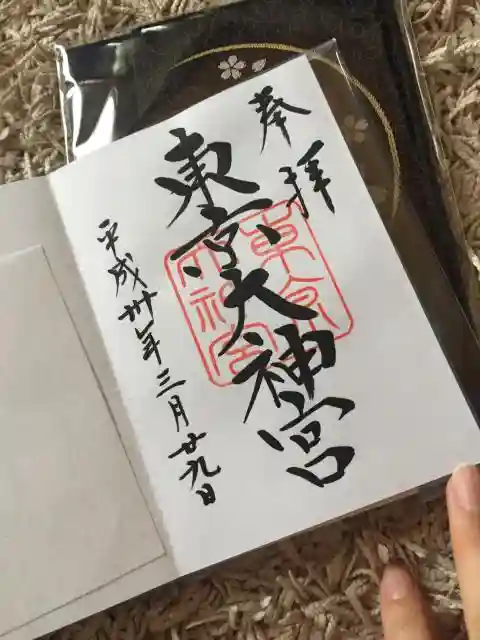 奉拝
東京大神宮
東京大神宮
平成卅年三月廿九日